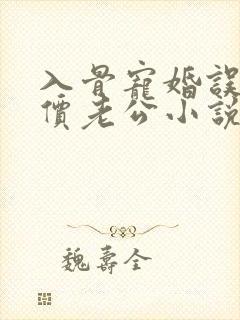 入骨寵婚誤
價老公小説
魏壽全